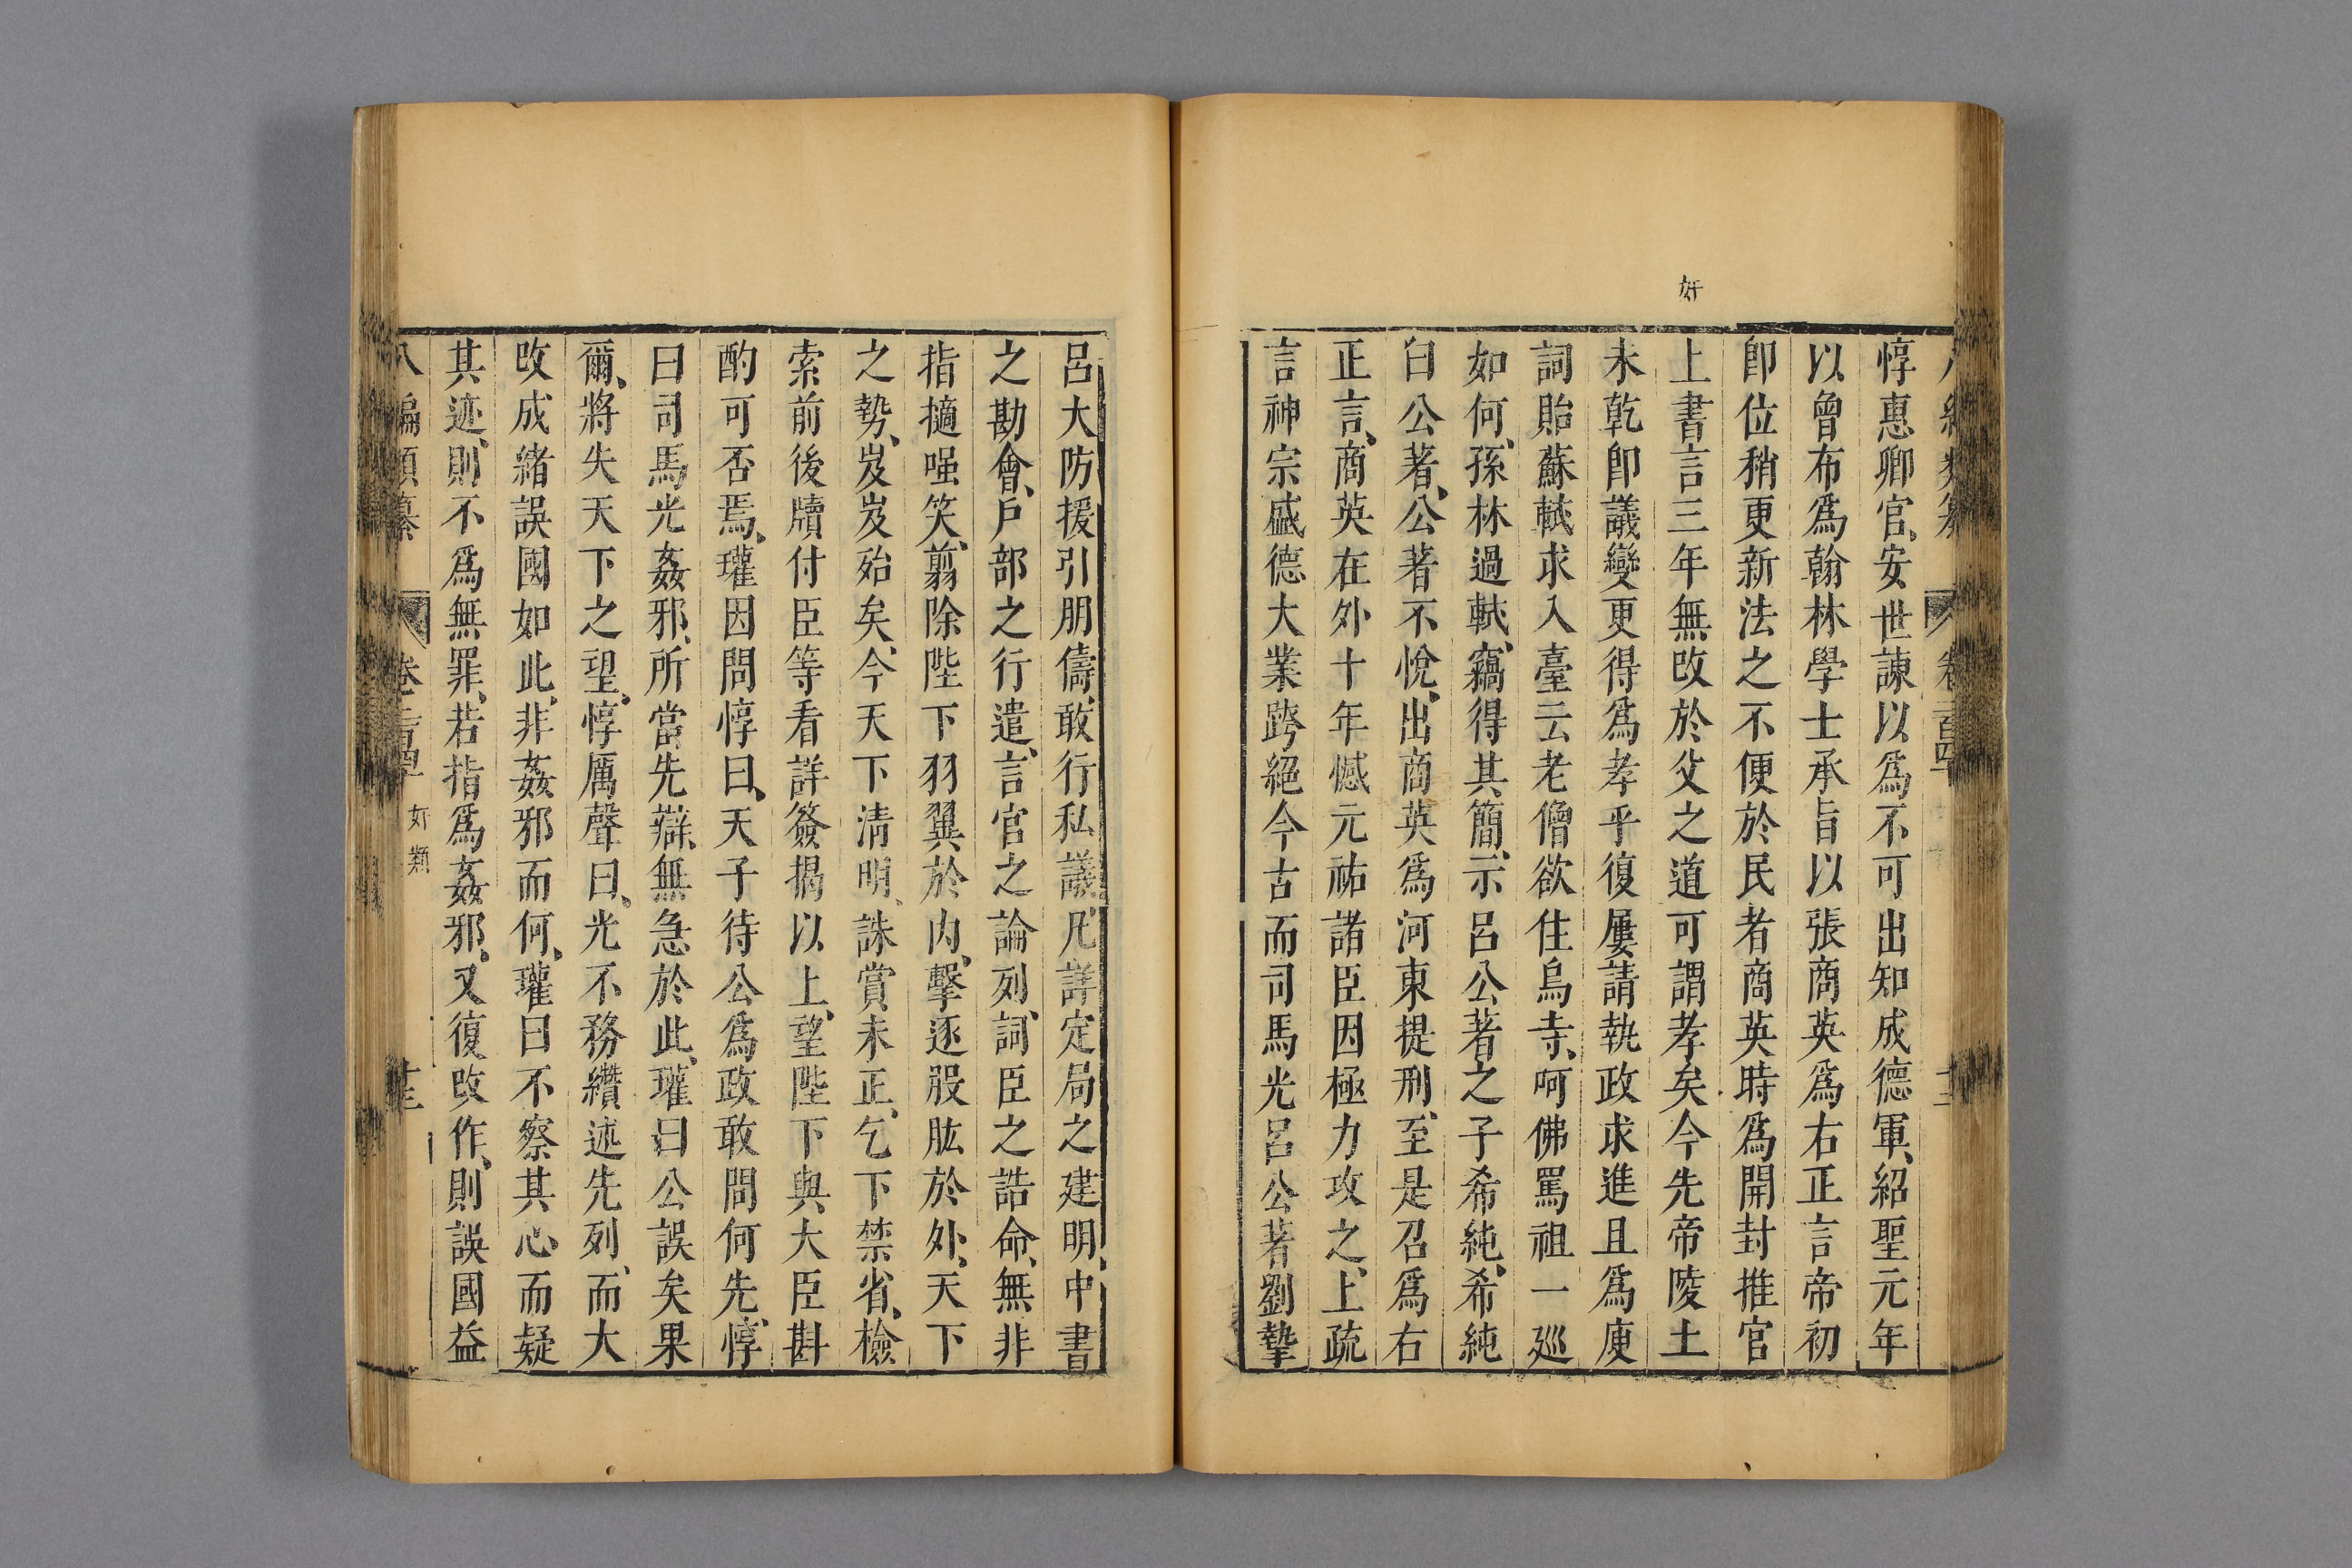 奸
惇惠卿官、安世諫以爲不可出知成德軍、紹聖元年
以曾布爲翰林學士承旨以張商英爲右正言帝初
卽位稍更新法之不便於民者商英時爲開封推官
上書言三年無攺於父之道可謂孝矣今先帝陵土
未乾卽議變更得爲孝乎復屢請執政求進且爲庾
詞貽蘇軾求入臺云老僧欲住烏寺、呵佛罵祖一廵
如何、孫林過軾、竊得其簡、示呂公著之子希純、希純
白公著、公著不悅、出商英爲河東提刑、至是召爲右
正言、商英在外十年憾元祐諸臣因極力攻之、上疏
言神宗盛德大業跨絕今古而司馬光呂公著劉摯
呂大防援引朋儔、敢行私議、凡詳定局之建明、中書
之勘會、戶部之行遣、言官之論列、詞臣之誥命、無非
指擿嗤笑、翦除陛下羽翼於內、擊逐股肱於外、天下
之勢、岌岌殆矣、今天下清明、誅賞未正、乞下禁省、檢
索前後牘付臣等看詳簽揭以上、望陛下與大臣斟
酌可否焉、瓘因問惇曰、天子待公爲政敢問何先、惇
曰司馬光姦邪、所當先辯、無急於此、瓘曰公誤矣果
爾、將失天下之望、惇厲聲曰、光不務纘述先列、而大
攺成緒誤國如此、非姦邪而何、瓘曰不察其心、而疑
其迹、則不爲無罪、若指爲姦邪、又復攺作、則誤國益
八編類纂 卷二百四 奸類